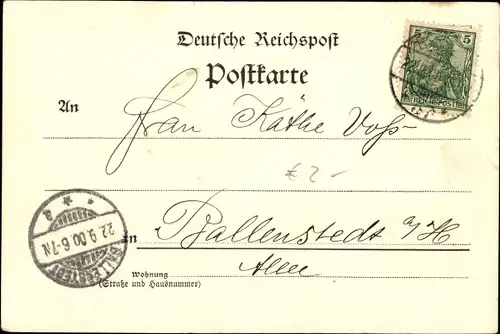 Deutsche Reichspost
Postkarte
5 5
REICHSPOST
An
Frau Käthe Voß
€ 2-
22.9.00.6-7N
a
BALLENSTEDT
in Ballenstedt a/H
Allee
Wohnung
(Straße und Hausnummer)